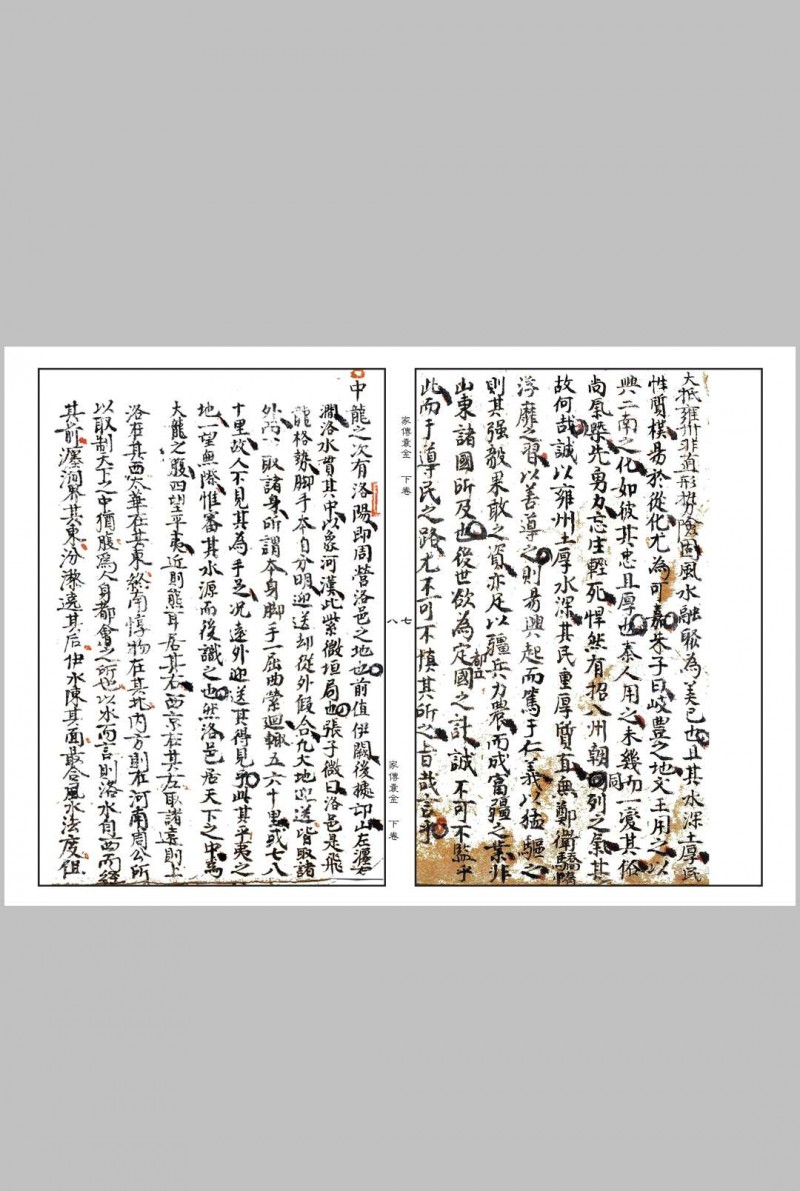 大抵雍州非直形勢險固風水融聚為美已也且其水深土厚民
性質樸易於從化尤為可嘉朱子曰岐豊之地文王用之以
興二南之化如彼其忠且厚也秦人用之未幾而一变其俗
尚氣槩先勇力忘生輕死悍然有招八州朝同列之氣其
故何哉誠以雍州土厚水深其民重厚質直無鄭衛驕惰
浮靡之習以善導之則易興起而篤于仁義以猛驅之
則其强毅果敢之資亦足以疆兵力農而成富疆之業非
山東諸國所及也後世欲為定國之計誠不可不監乎
都
此而于導民之路尤不可不慎其所之旨哉言乎
家傳彔金 下卷
七
八
家傳彔金 下卷
中龍之次有洛陽即周營洛邑之地也前值伊闕後據邙山左瀍右
澗洛水貫其中以象河漢此紫微垣局也張子微曰洛邑是飛
龍格勢脚手本自分明迎送却從外假合凢大地迎送皆取諸
外而取諸身所謂本身脚手一屈曲縈廻輒五六十里或七八
十里故人不見其為手足况遠外迎送其得見乎此其平夷之
地一望無際惟審其水源而後識之也然洛邑居天下之中為
大龍之腹四望平夷近則熊耳居其右西京在其左取諸遠則上
洛在其西太華在其東終南惇物在其北内方則在河南周公所
以取制天下之中猶腹為人身都會之所也以水而言則洛水自西而經
其前瀍澗界其東汾潔遶其后伊水陳其面最合風水法度但